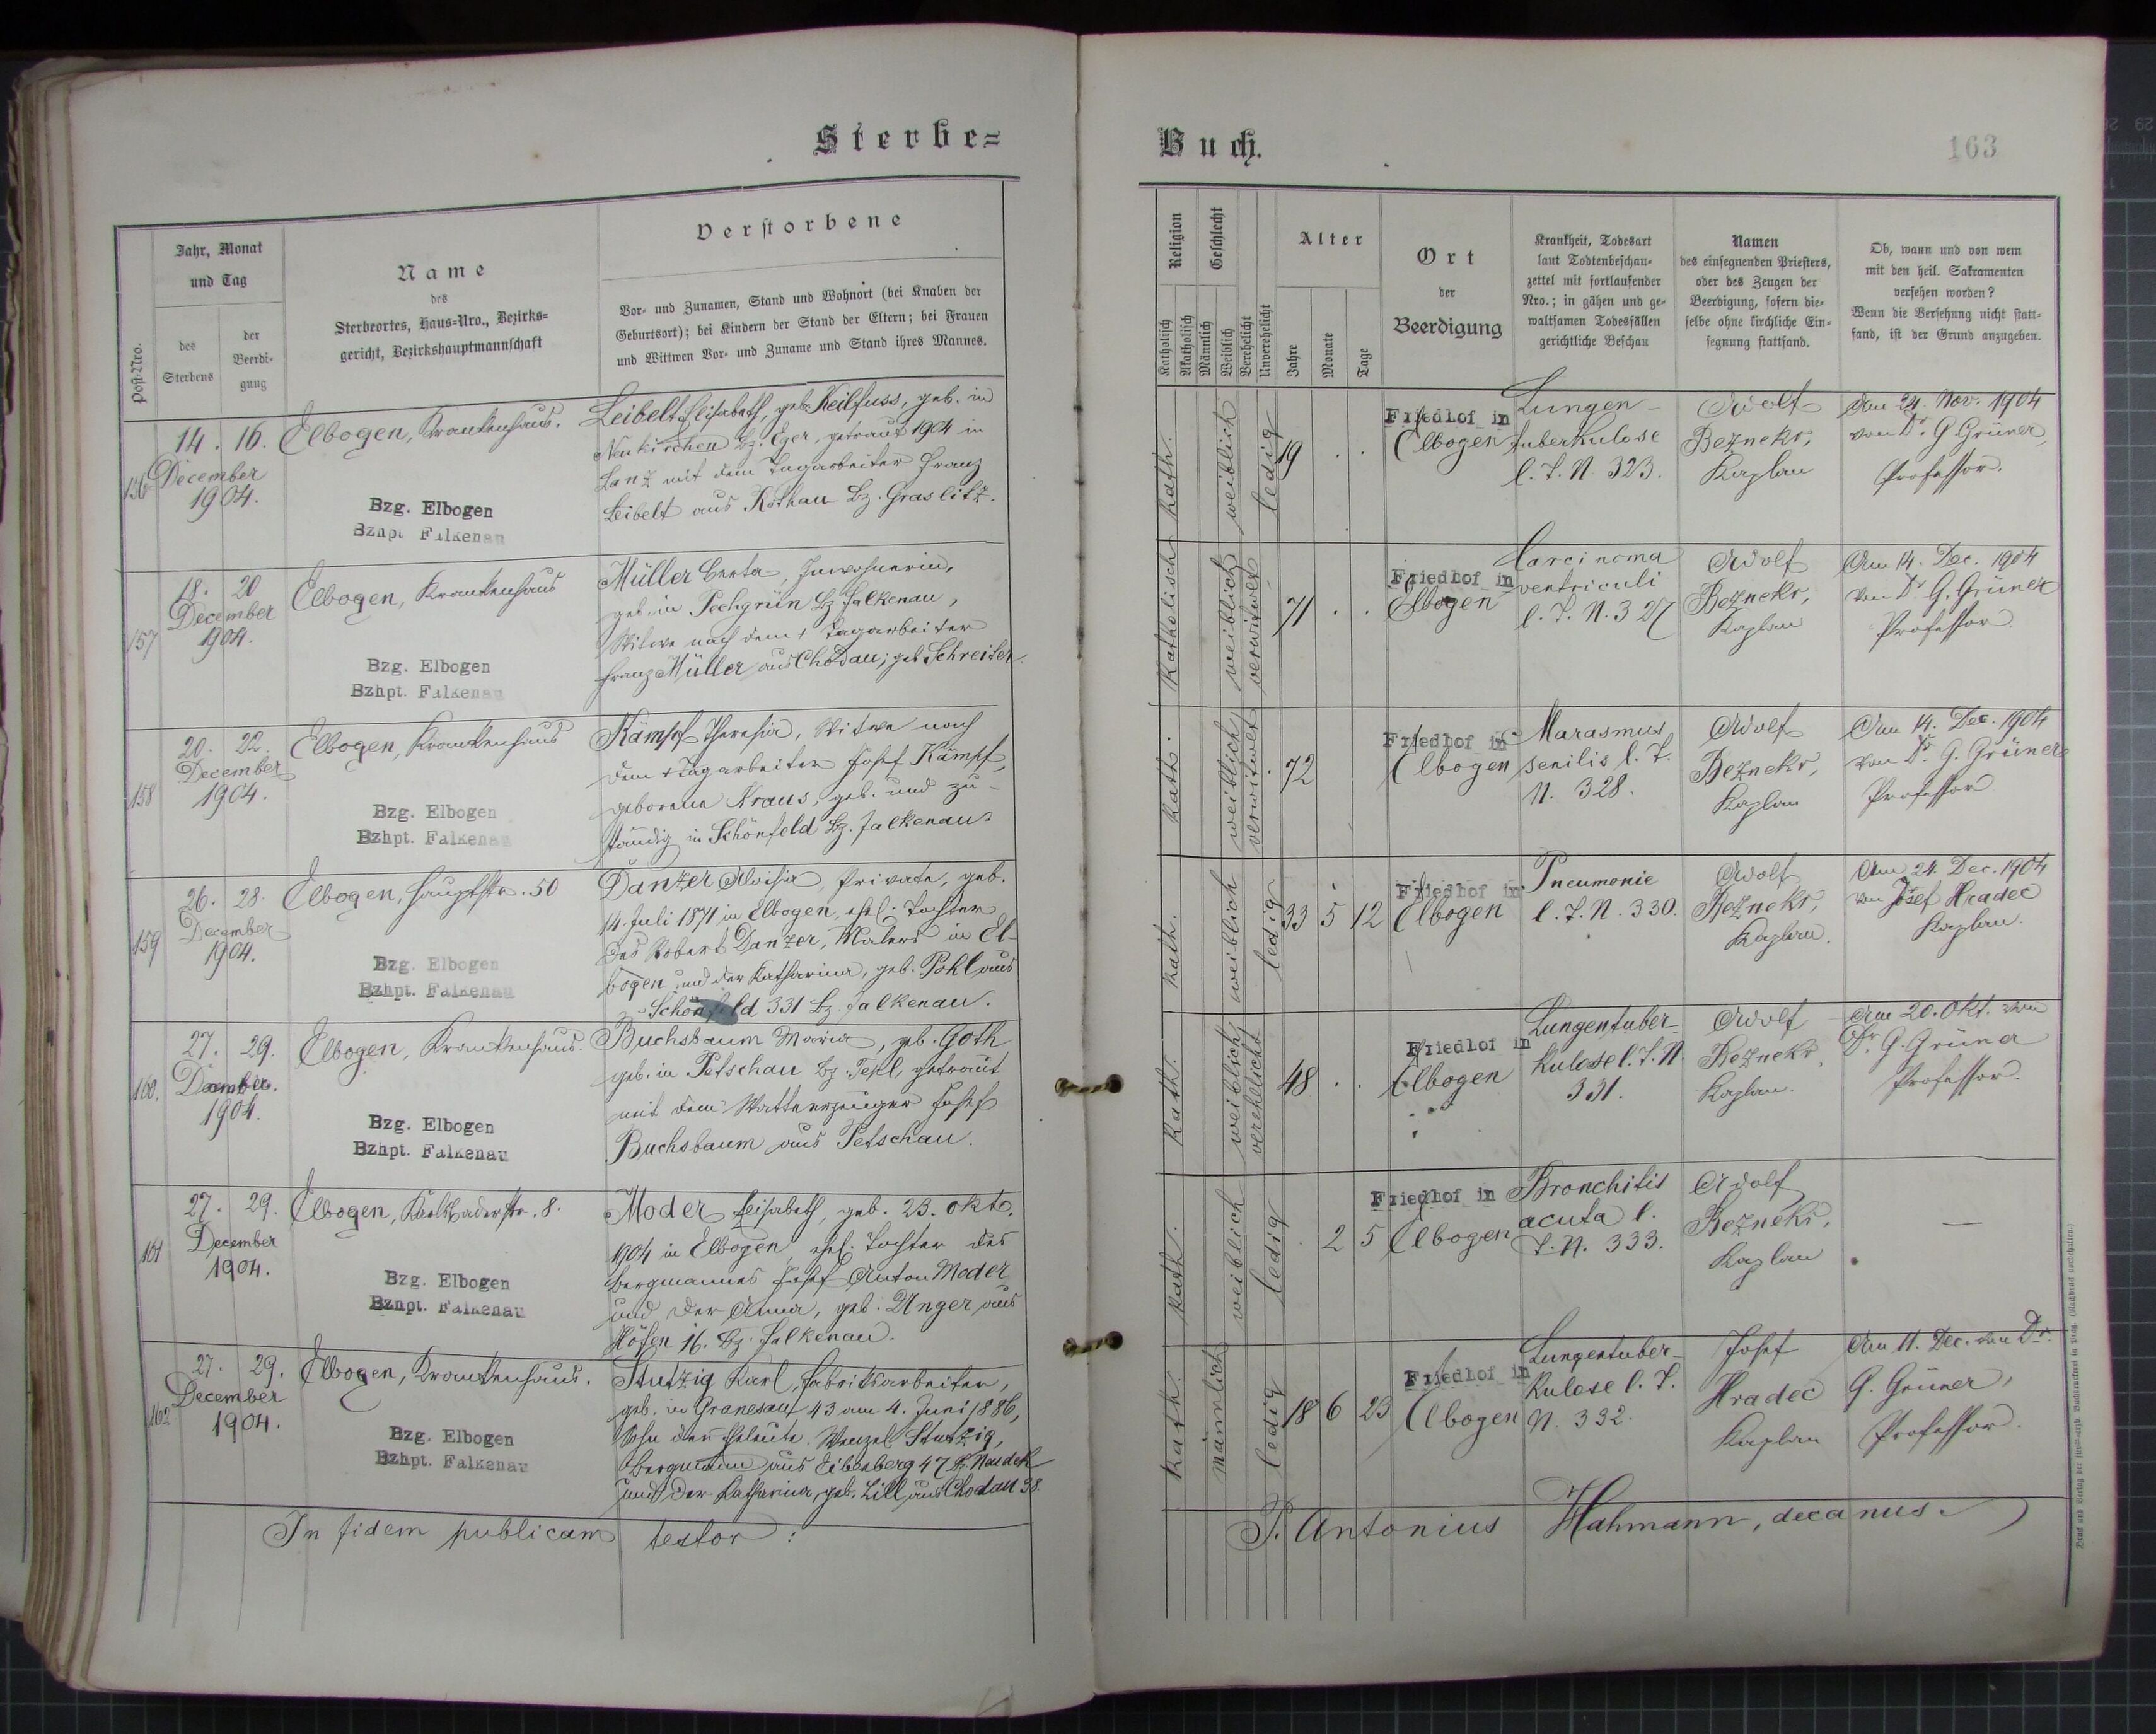 Sterbe=
Buch.
163
Post-Nro.
Jahr, Monat
und Tag
des
Sterbens
der
Beerdi-
gung
Name
des
Sterbeortes, Haus-Nro., Bezirks=
gericht, Bezirkshauptmannschaft
Verstorbene
Vor- und Zunamen, Stand und Wohnort (bei Knaben der
Geburtsort); bei Kindern der Stand der Eltern; bei Frauen
und Wittwen Vor- und Zuname und Stand ihres Mannes.
Religion
Katholisch
Akatholisch
Geschlecht
Männlich
Weiblich
Verehelicht
Unverehelicht
Alter
Jahre
Monate
Tage
Ort
der
Beerdigung
Krankheit, Todesart
laut Todtenbeschau-
zettel mit fortlaufender
Nro.; in gähen und ge-
waltsamen Todesfällen
gerichtliche Beschau
Namen
des einsegnenden Priesters,
oder des Zeugen der
Beerdigung, sofern die-
selbe ohne kirchliche Ein-
segnung stattfand.
Ob, wann und von wem
mit den heil. Sakramenten
versehen worden?
Wenn die Versehung nicht statt-
fand, ist der Grund anzugeben.
156
14. 16.
December
1904.
Elbogen, Krankenhaus.
Bzg. Elbogen
Bzhpt Falkenau
Leibelt Elisabeth, geb. Keilfuss, geb. in
Neukirchen Bz. Eger, getraut 1904 in
Lanz mit dem Tagarbeiter Franz
Leibelt aus Rothau Bz. Graslitz.
Kath.
weiblich
ledig
19 . .
Friedhof in
Elbogen
Lungen-
tuberkulose
l. T. N. 323.
Adolf
Bezneks,
Kaplan
Am 24. Nov. 1904
von Dr. G Grüner,
Professor.
157
18. 20
December
1904.
Elbogen, Krankenhaus
Bzg. Elbogen
Bzhpt. Falkenau
Müller Berta, Inwohnerin,
geb. in Pechgrün Bz. Falkenau,
Witwe nach dem + Tagarbeiter
Franz Müller aus Chodau; geb. Schreiter
Katholisch
weiblich
verwitwet
71 . .
Friedhof in
Elbogen
Carcinoma
ventriculi
l. T. N. 327
Adolf
Bezneks,
Kaplan
Am 14. Dec. 1904
von Dr. G. Grüner
Professor.
158
20. 22.
December
1904.
Elbogen, Krankenhaus
Bzg. Elbogen
Bzhpt. Falkenau
Kämpf Theresia, Witwe nach
dem + Tagarbeiter Josef Kämpf,
geborene Kraus, geb. und zu-
ständig in Schönfeld Bz. Falkenau.
Kath.
weiblich
verwitwet
72
Friedhof in
Elbogen
Marasmus
senilis l. T.
N. 328.
Adolf
Bezneks,
Kaplan
Am 14. Dec. 1904
von Dr. G. Grüner
Professor
159
26. 28.
December
1904.
Elbogen, Hauptstr. 50
Bzg. Elbogen
Bzhpt. Falkenau
Danzer Aloisia, Private, geb.
14. Juli 1871 in Elbogen, ehel. Tochter
des Robert Danzer, Malers in El-
bogen und der Katharina, geb. Pohl aus
Schönfeld 331 Bz. Falkenau.
Kath.
weiblich
ledig
33 5 12
Friedhof in
Elbogen
Pneumonie
l. T. N. 330.
Adolf
Bezneks,
Kaplan.
Am 24. Dec. 1904
von Josef Hradec
Kaplan.
160.
27. 29.
December.
1904.
Elbogen, Krankenhaus.
Bzg. Elbogen
Bzhpt. Falkenau
Buchsbaum Maria, geb. Goth
geb. in Petschau Bz. Tepl, getraut
mit dem Watteerzeuger Josef
Buchsbaum aus Petschau.
Kath.
weiblich
verehelicht
48 . .
Friedhof in
Elbogen
Lungentuber-
kulose l. T. N.
331.
Adolf
Bezneks,
Kaplan.
Am 20. Okt. von
Dr. G. Grüner
Professor.
161
27. 29.
December
1904.
Elbogen, Karlsbaderstr. 8.
Bzg. Elbogen
Bzhpt. Falkenau
Moder Elisabeth, geb. 23. Okto.
1904 in Elbogen, ehel. Tochter des
Bergmannes Josef Anton Moder
und der Anna, geb. Unger aus
Höfen 16. Bz. Falkenau.
Kath.
weiblich
ledig
. 2 5
Friedhof in
Elbogen
Bronchitis
acuta l.
T. N. 333.
Adolf
Bezneks,
Kaplan
—
162
27. 29.
December
1904.
Elbogen, Krankenhaus.
Bzg. Elbogen
Bzhpt. Falkenau
Stutzig Karl, Fabriksarbeiter,
geb. in Granesau 43 am 4. Juni 1886,
Sohn der Eheleute Wenzel Stutzig,
Bergmann aus Eibenberg 47 Bz. Neudek
und der Katharina, geb. Lill aus Chodau 38.
Kath.
männlich
ledig
18 6 23
Friedhof in
Elbogen
Lungentuber-
kulose l. T.
N. 332.
Josef
Hradec
Kaplan
Am 11. Dec. von Dr.
G. Grüner,
Professor.
In fidem publicam testor:
P. Antonius Hahmann, decanus.